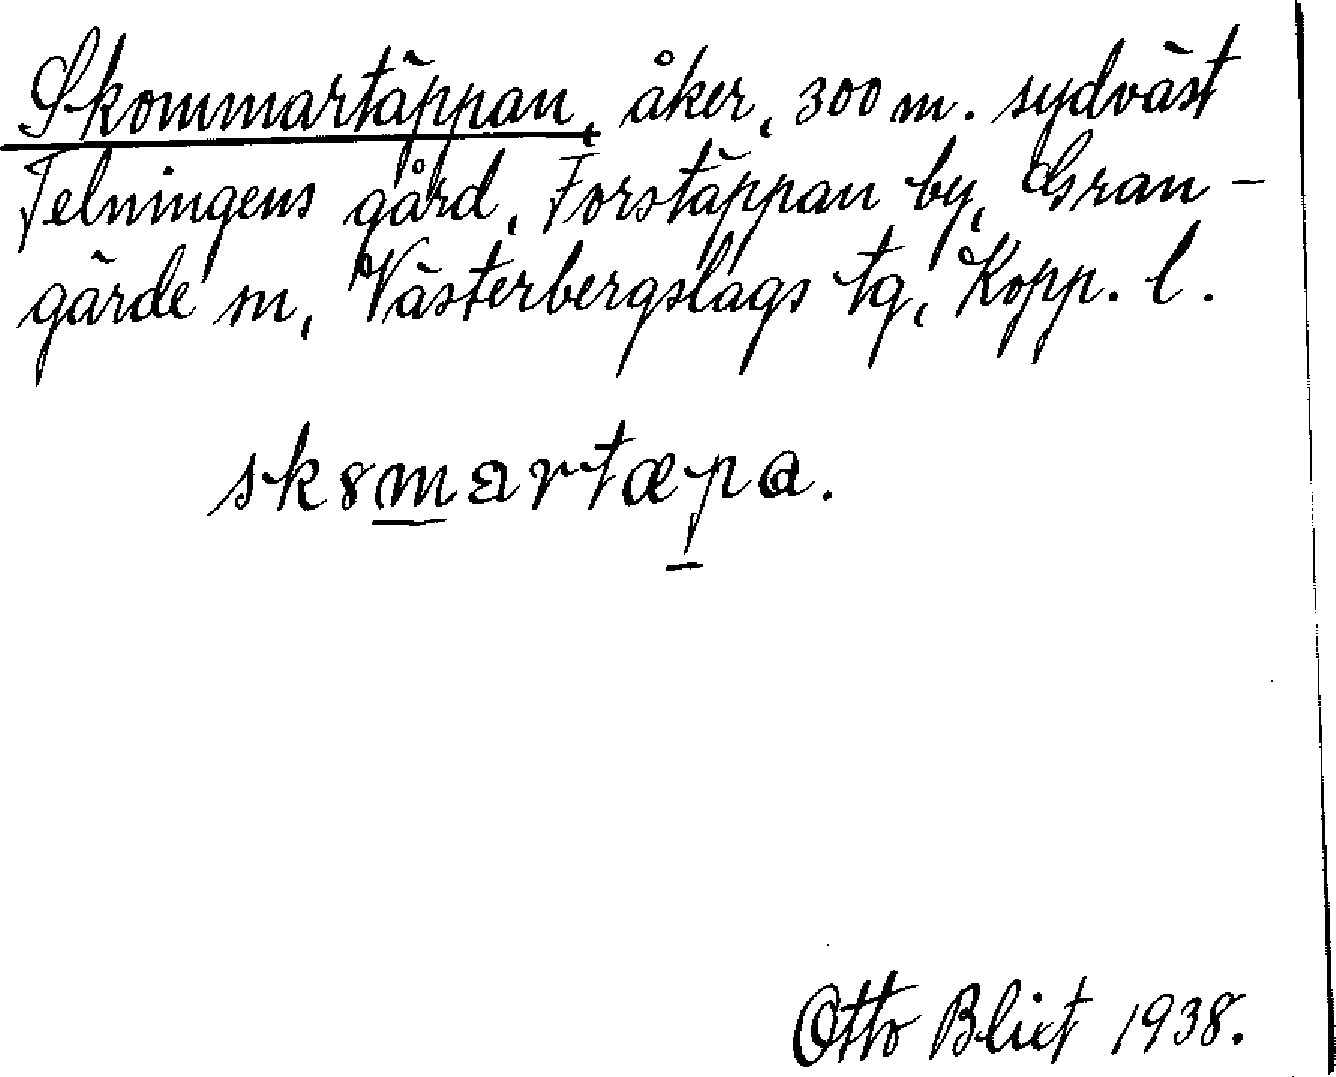 Skommartäppan, åker, 300 m. sydväst
Telningens gård, Forstäppan by, Gran-
gärde sn, Västerbergslags tg, Kopp. l.
sk8martæpa.
Otto Blixt 1938.